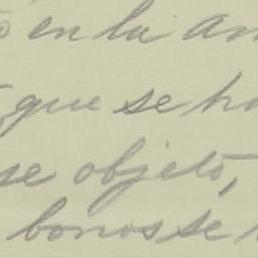 en la
que se
se objeto,
bonos se